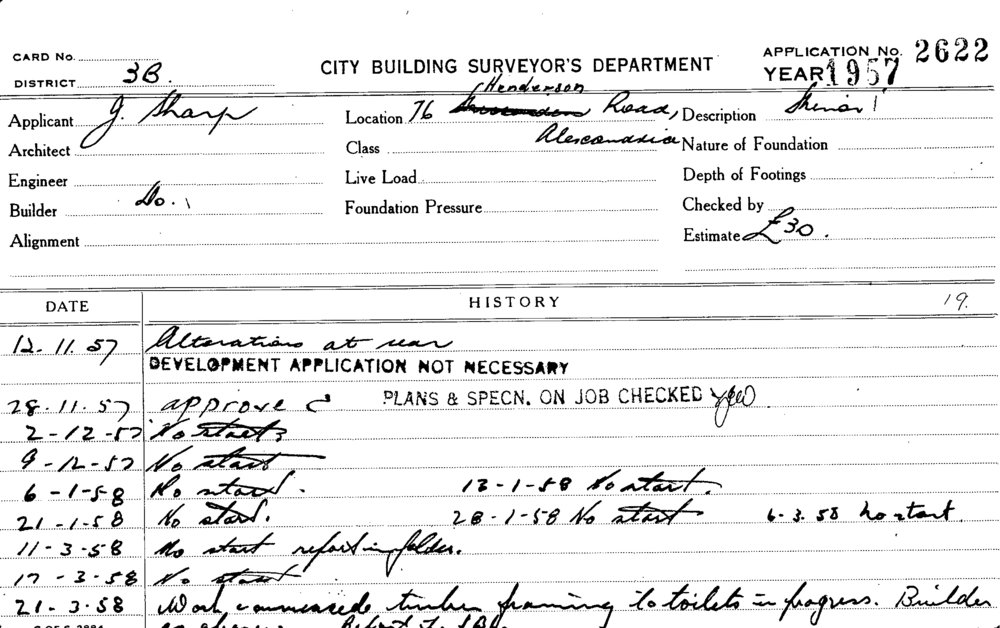 CARD No.
DISTRICT 3B.
CITY BUILDING SURVEYOR'S DEPARTMENT
APPLICATION No. 2622
YEAR 1957
Applicant J. Sharp
Location 76 Henderson Road, Alexandria
Description
Architect
Class
Nature of Foundation
Engineer
Live Load
Depth of Footings
Builder Do.
Foundation Pressure
Checked by
Alignment
Estimate £30.
DATE HISTORY 19.
12-11.57 Alterations at rear
DEVELOPMENT APPLICATION NOT NECESSARY
28.11.57 approved PLANS & SPECN. ON JOB CHECKED
2-12-57 No start
9-12-57 No start
6-1-58 No start. 13-1-58 No start.
21-1-58 No start. 28-1-58 No start 6.3.58 No start.
11-3-58 No start report in folder.
17-3-58 No start
21-3-58 Work commenced timber framing to toilets in progress. Builder